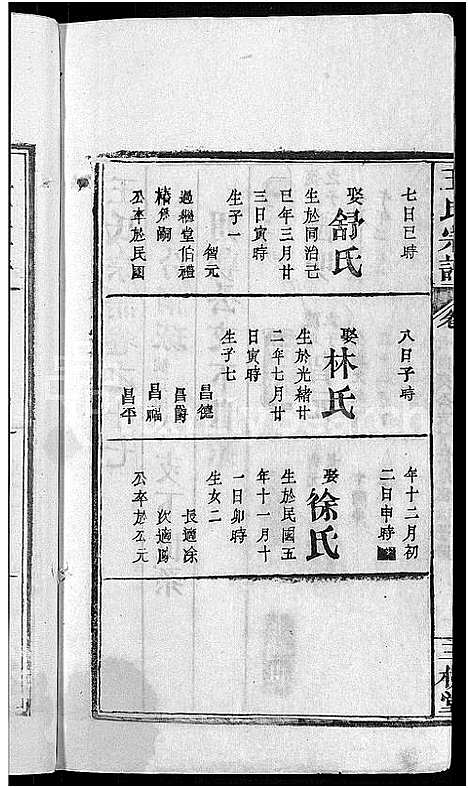 王氏宗譜
卷
三槐堂
七日巳時
娶舒氏
生於同治己
巳年三月廿
三日寅時
生子一
智元
過繼堂伯禮
椿為嗣
公卒於民國
八日子時
娶林氏
生於光緒廿
二年七月廿
日寅時
生子七
昌德
昌爵
昌福
昌平
年十二月初
二日申時
娶徐氏
生於民國五
年十一月十
一日卯時
生女二
長適涂
次適
公卒於公元